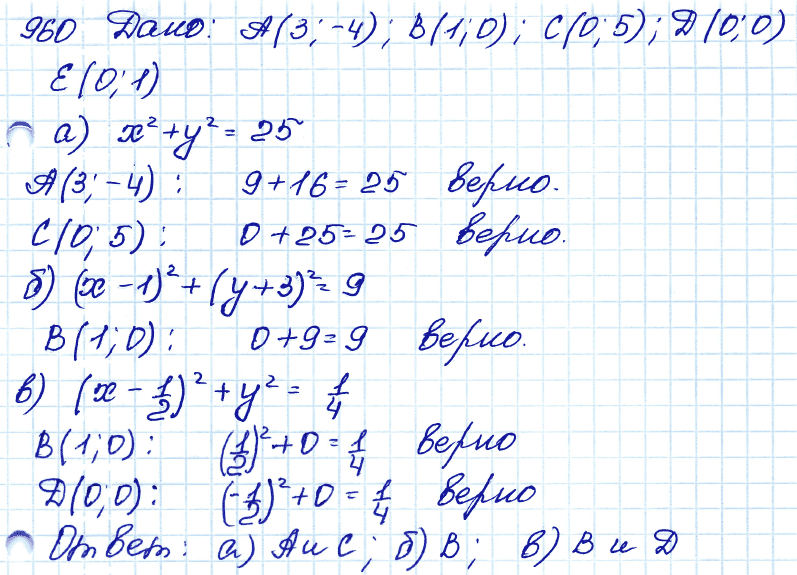 960 Дано: A(3;-4); B(1;0); C(0;5); D(0;0)
E(0;1)
а) x² + y² = 25
A(3;-4): 9+16=25 верно.
C(0;5): 0+25=25 верно.
б) (x-1)² + (y+3)² = 9
B(1;0): 0+9=9 верно.
в) (x - 1/2)² + y² = 1/4
B(1;0): (1/2)² + 0 = 1/4 верно
D(0;0): (-1/2)² + 0 = 1/4 верно
Ответ: а) A и C; б) B; в) B и D